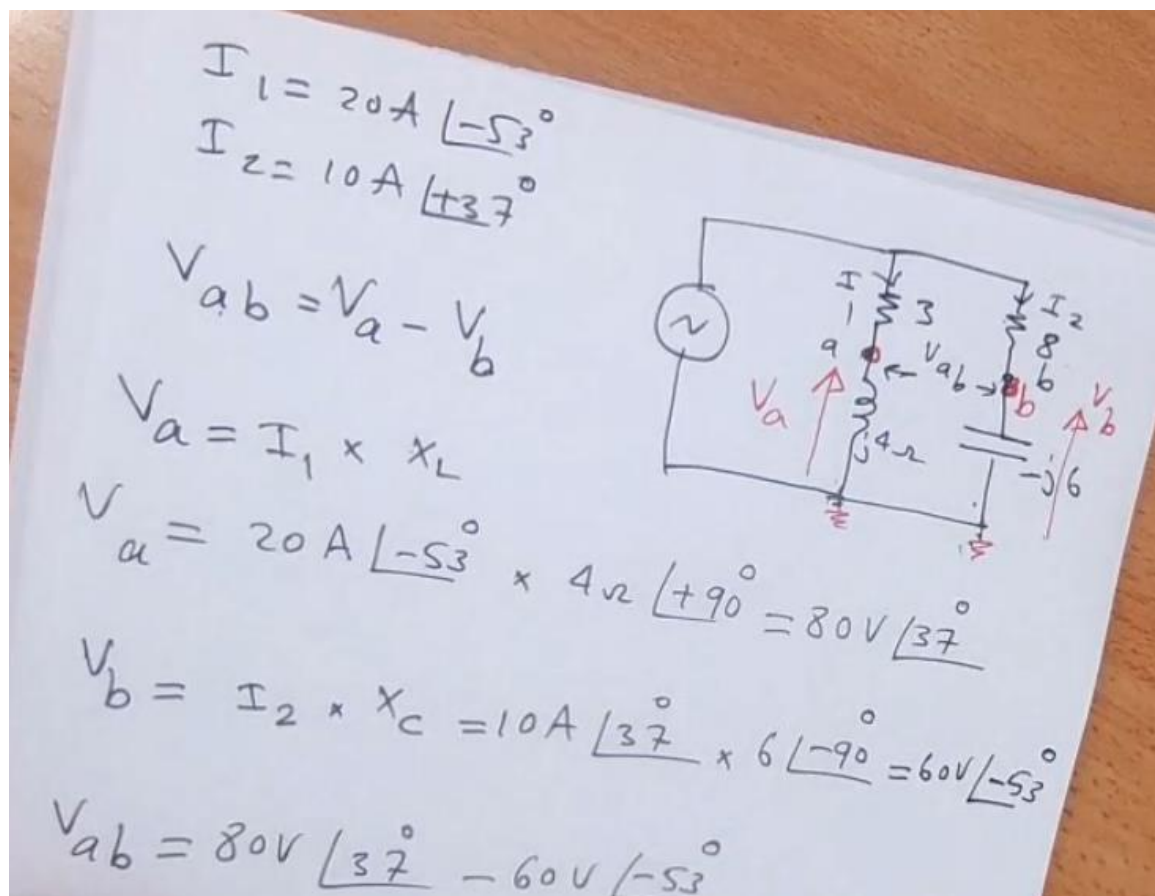 I1 = 20A ∠-53°
I2 = 10A ∠+37°
Vab = Va - Vb
Va = I1 × XL
Va = 20A ∠-53° × 4Ω ∠+90° = 80V ∠37°
Vb = I2 × Xc = 10A ∠37° × 6 ∠-90° = 60V ∠-53°
Vab = 80V ∠37° - 60V ∠-53°
I1
3
I2
8
a
Vab
b
b
Va
j4Ω
Vb
-j6
~